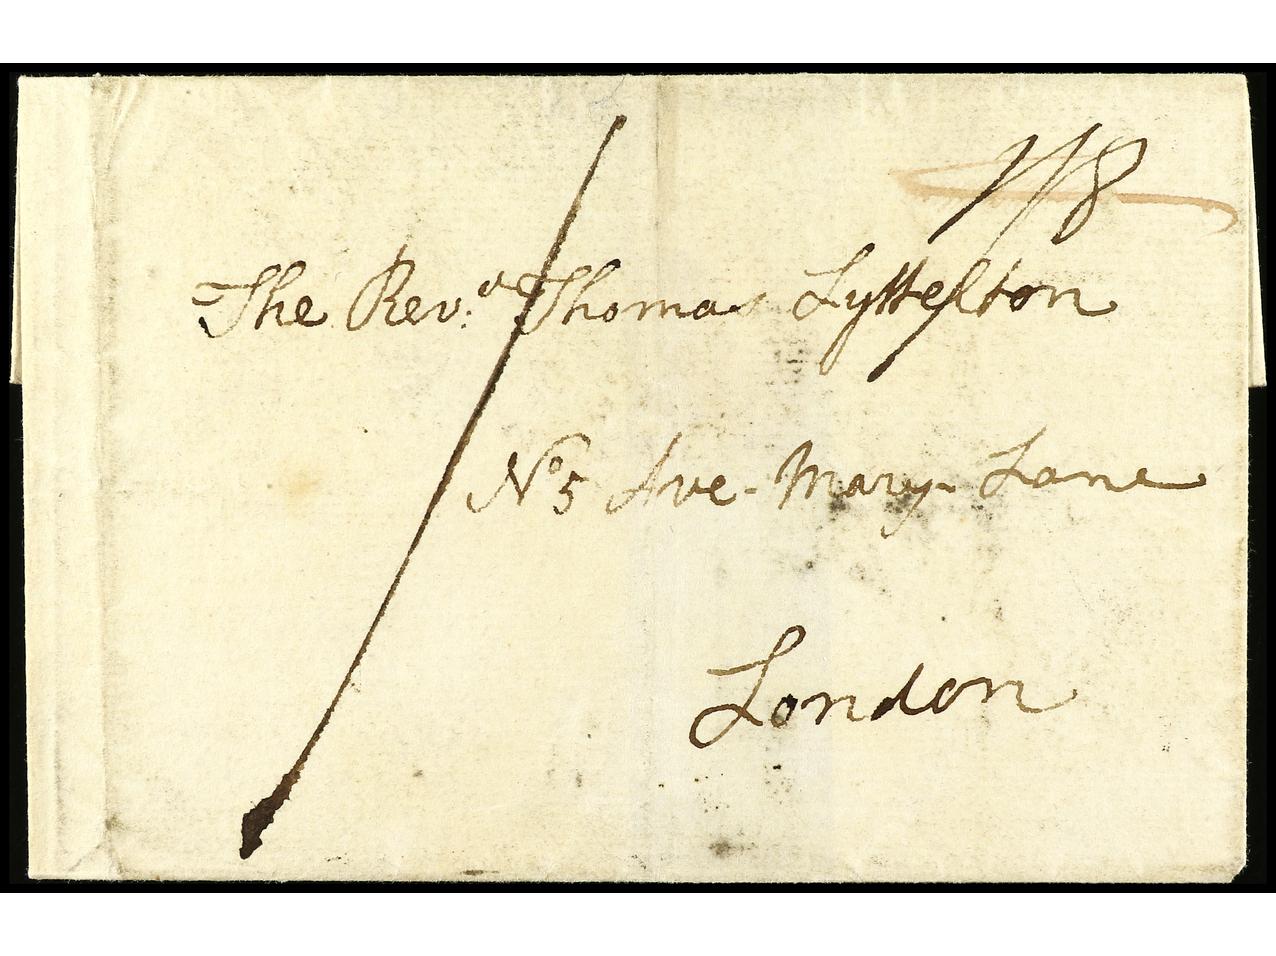 1/8
The Rev.d Thomas Lyttelton
No 5 Ave-Mary-Lane
London